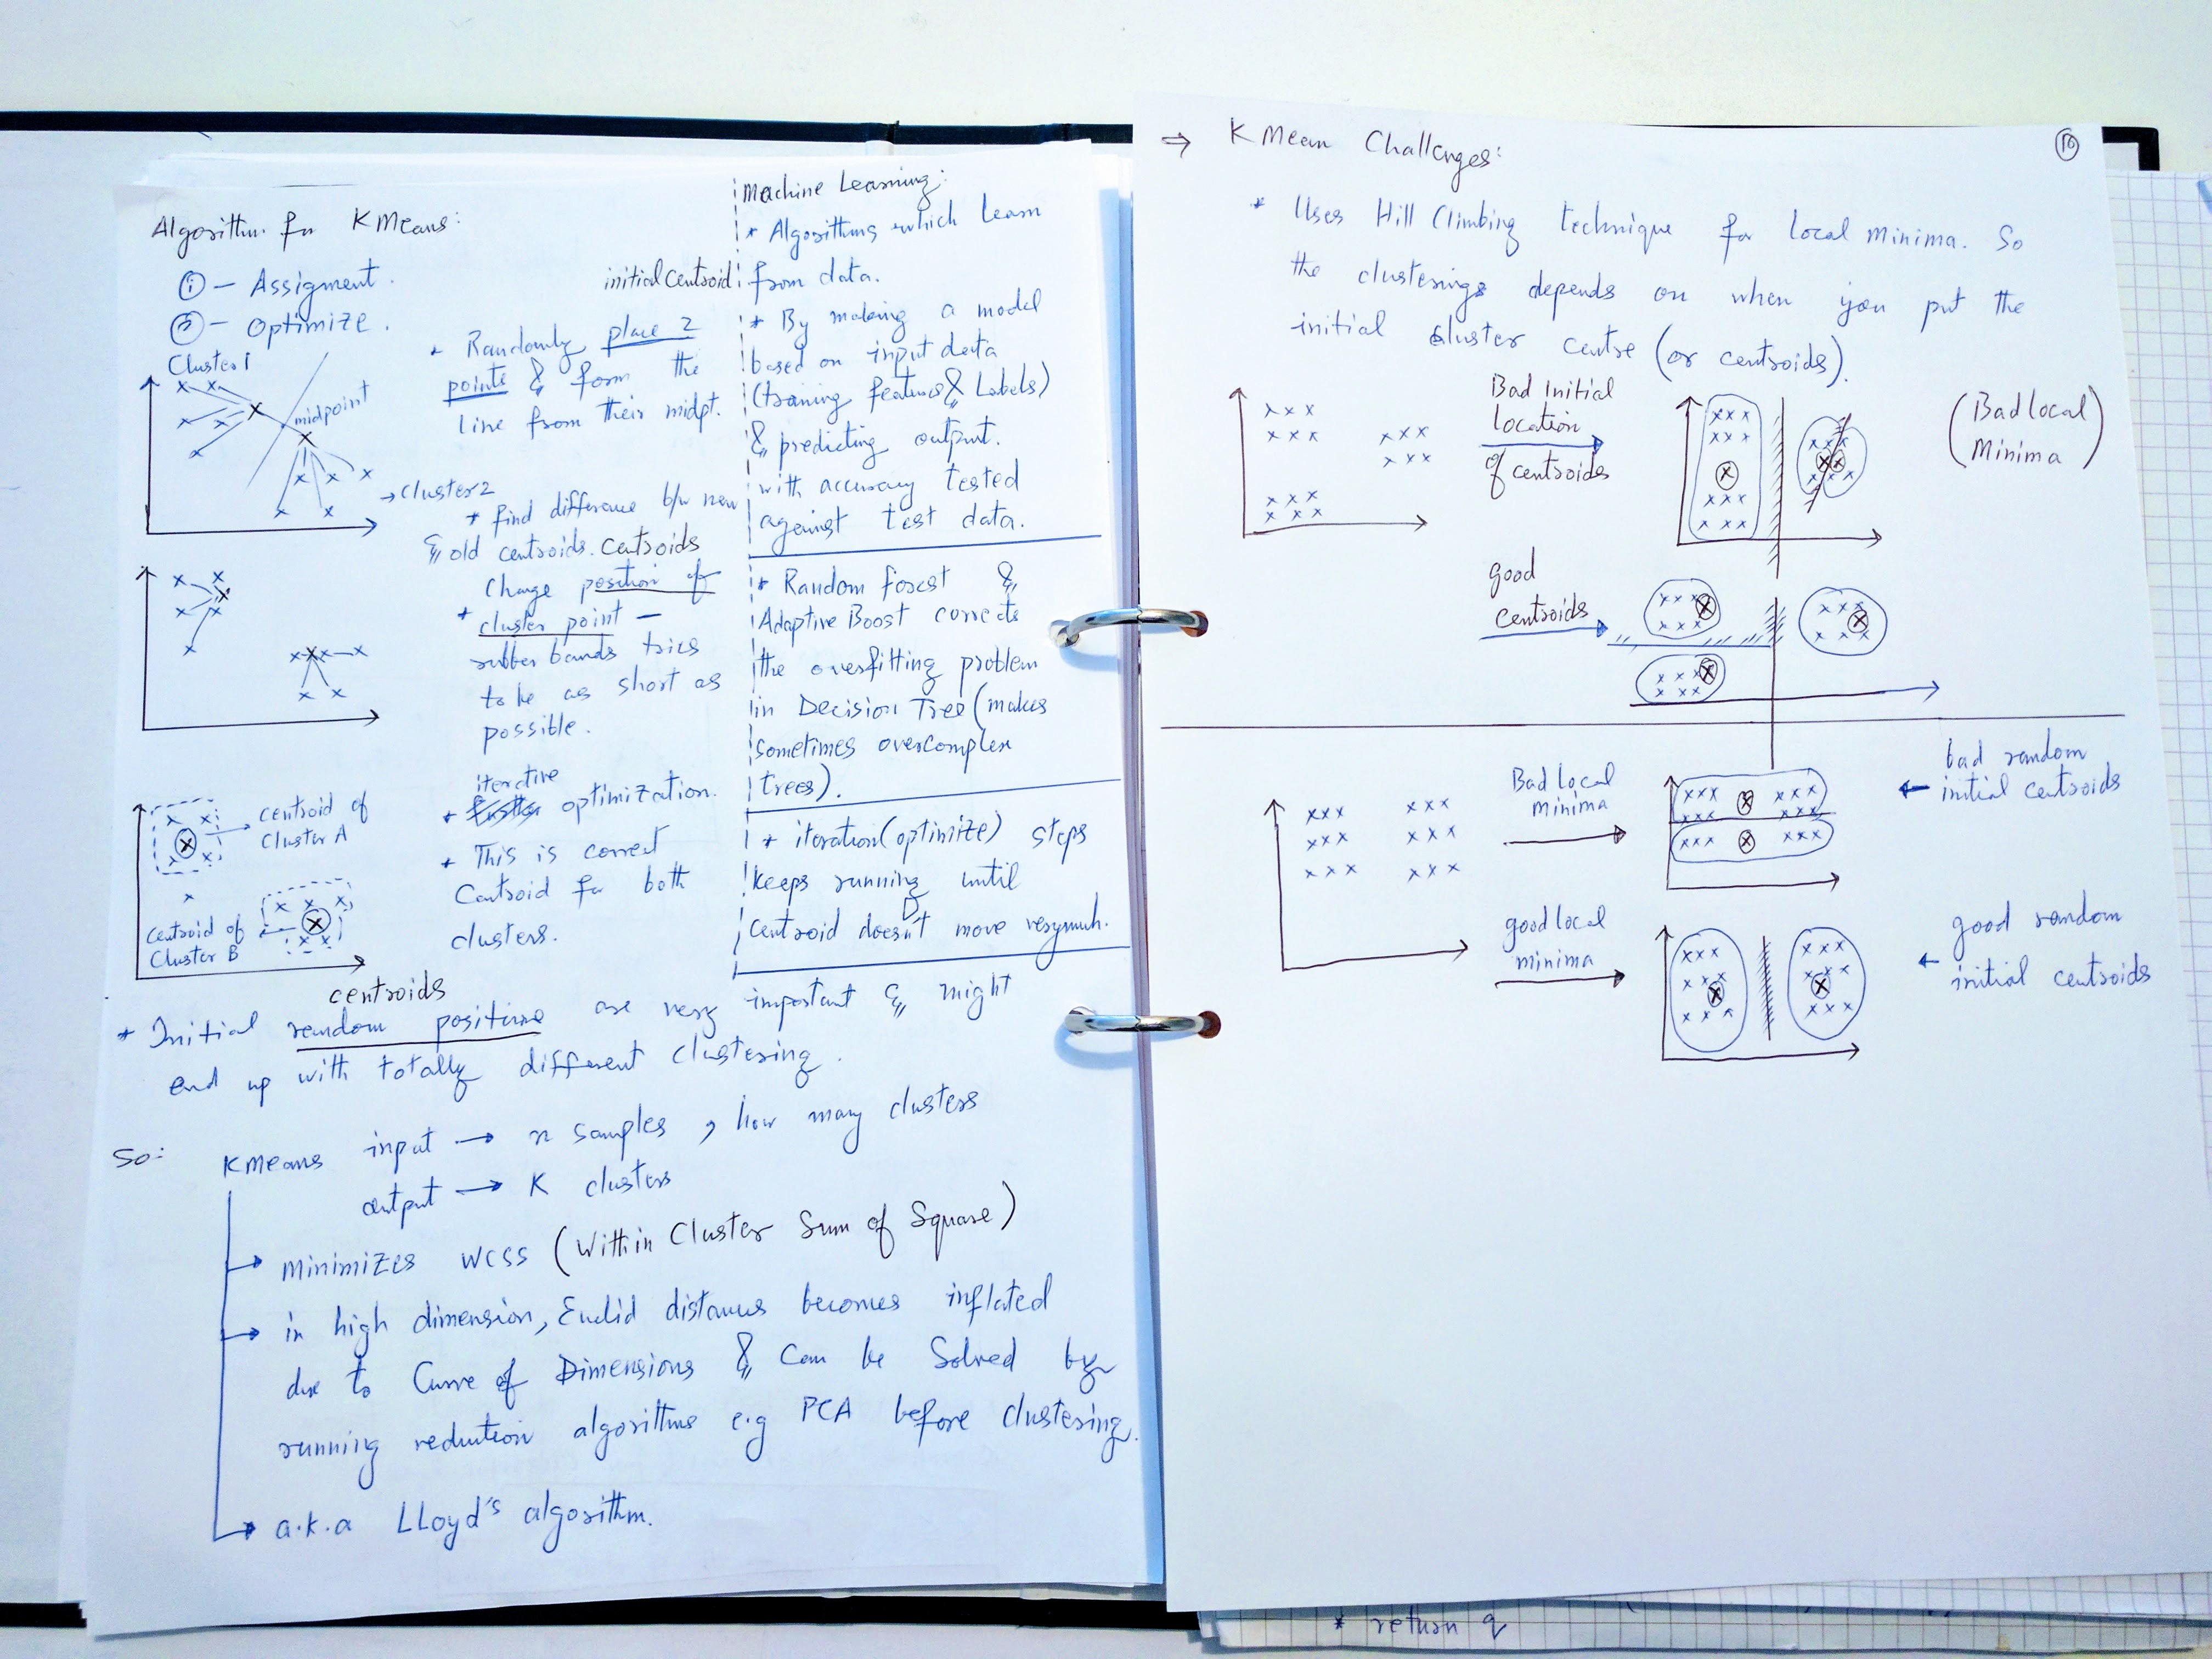 Algorithm for K Means:
① - Assigment.
② - Optimize.
Cluster 1
midpoint
→ Cluster 2
initial Centroid
* Randomly place 2
points & form the
line from their midpt.
* find difference b/w new
& old centroids. Centroids
Change position of
* cluster point –
rubber bands tries
to be as short as
possible.
iterative
* optimization.
* This is correct
Centroid for both
clusters.
centroid of
Cluster A
Centroid of
Cluster B
Machine Learning:
* Algorithms which learn
from data.
* By making a model
based on input data
(training features & Labels)
& predicting output.
with accuracy tested
against test data.
* Random forest &
Adaptive Boost corrects
the overfitting problem
in Decision Tree (makes
sometimes overcomplex
trees).
* iteration (optimize) steps
keeps running until
Centroid doesn't move very much.
centroids
* Initial random positions are very important & might
end up with totally different clustering.
So: K Means input → n samples, how many clusters
output → K clusters
→ minimizes WCSS (Within Cluster Sum of Square)
→ in high dimension, Euclid distances becomes inflated
due to Curve of Dimensions & Can be Solved by
running reduction algorithms e.g PCA before clustering.
→ a.k.a LLoyd's algorithm.
⇒ K Mean Challenges:
10
* Uses Hill Climbing technique for local minima. So
the clusterings depends on when you put the
initial cluster centre (or centroids).
Bad Initial
location
of centroids
(Bad local
Minima)
good
centroids
Bad local
minima
← bad random
initial centroids
good local
minima
← good random
initial centroids
* return q